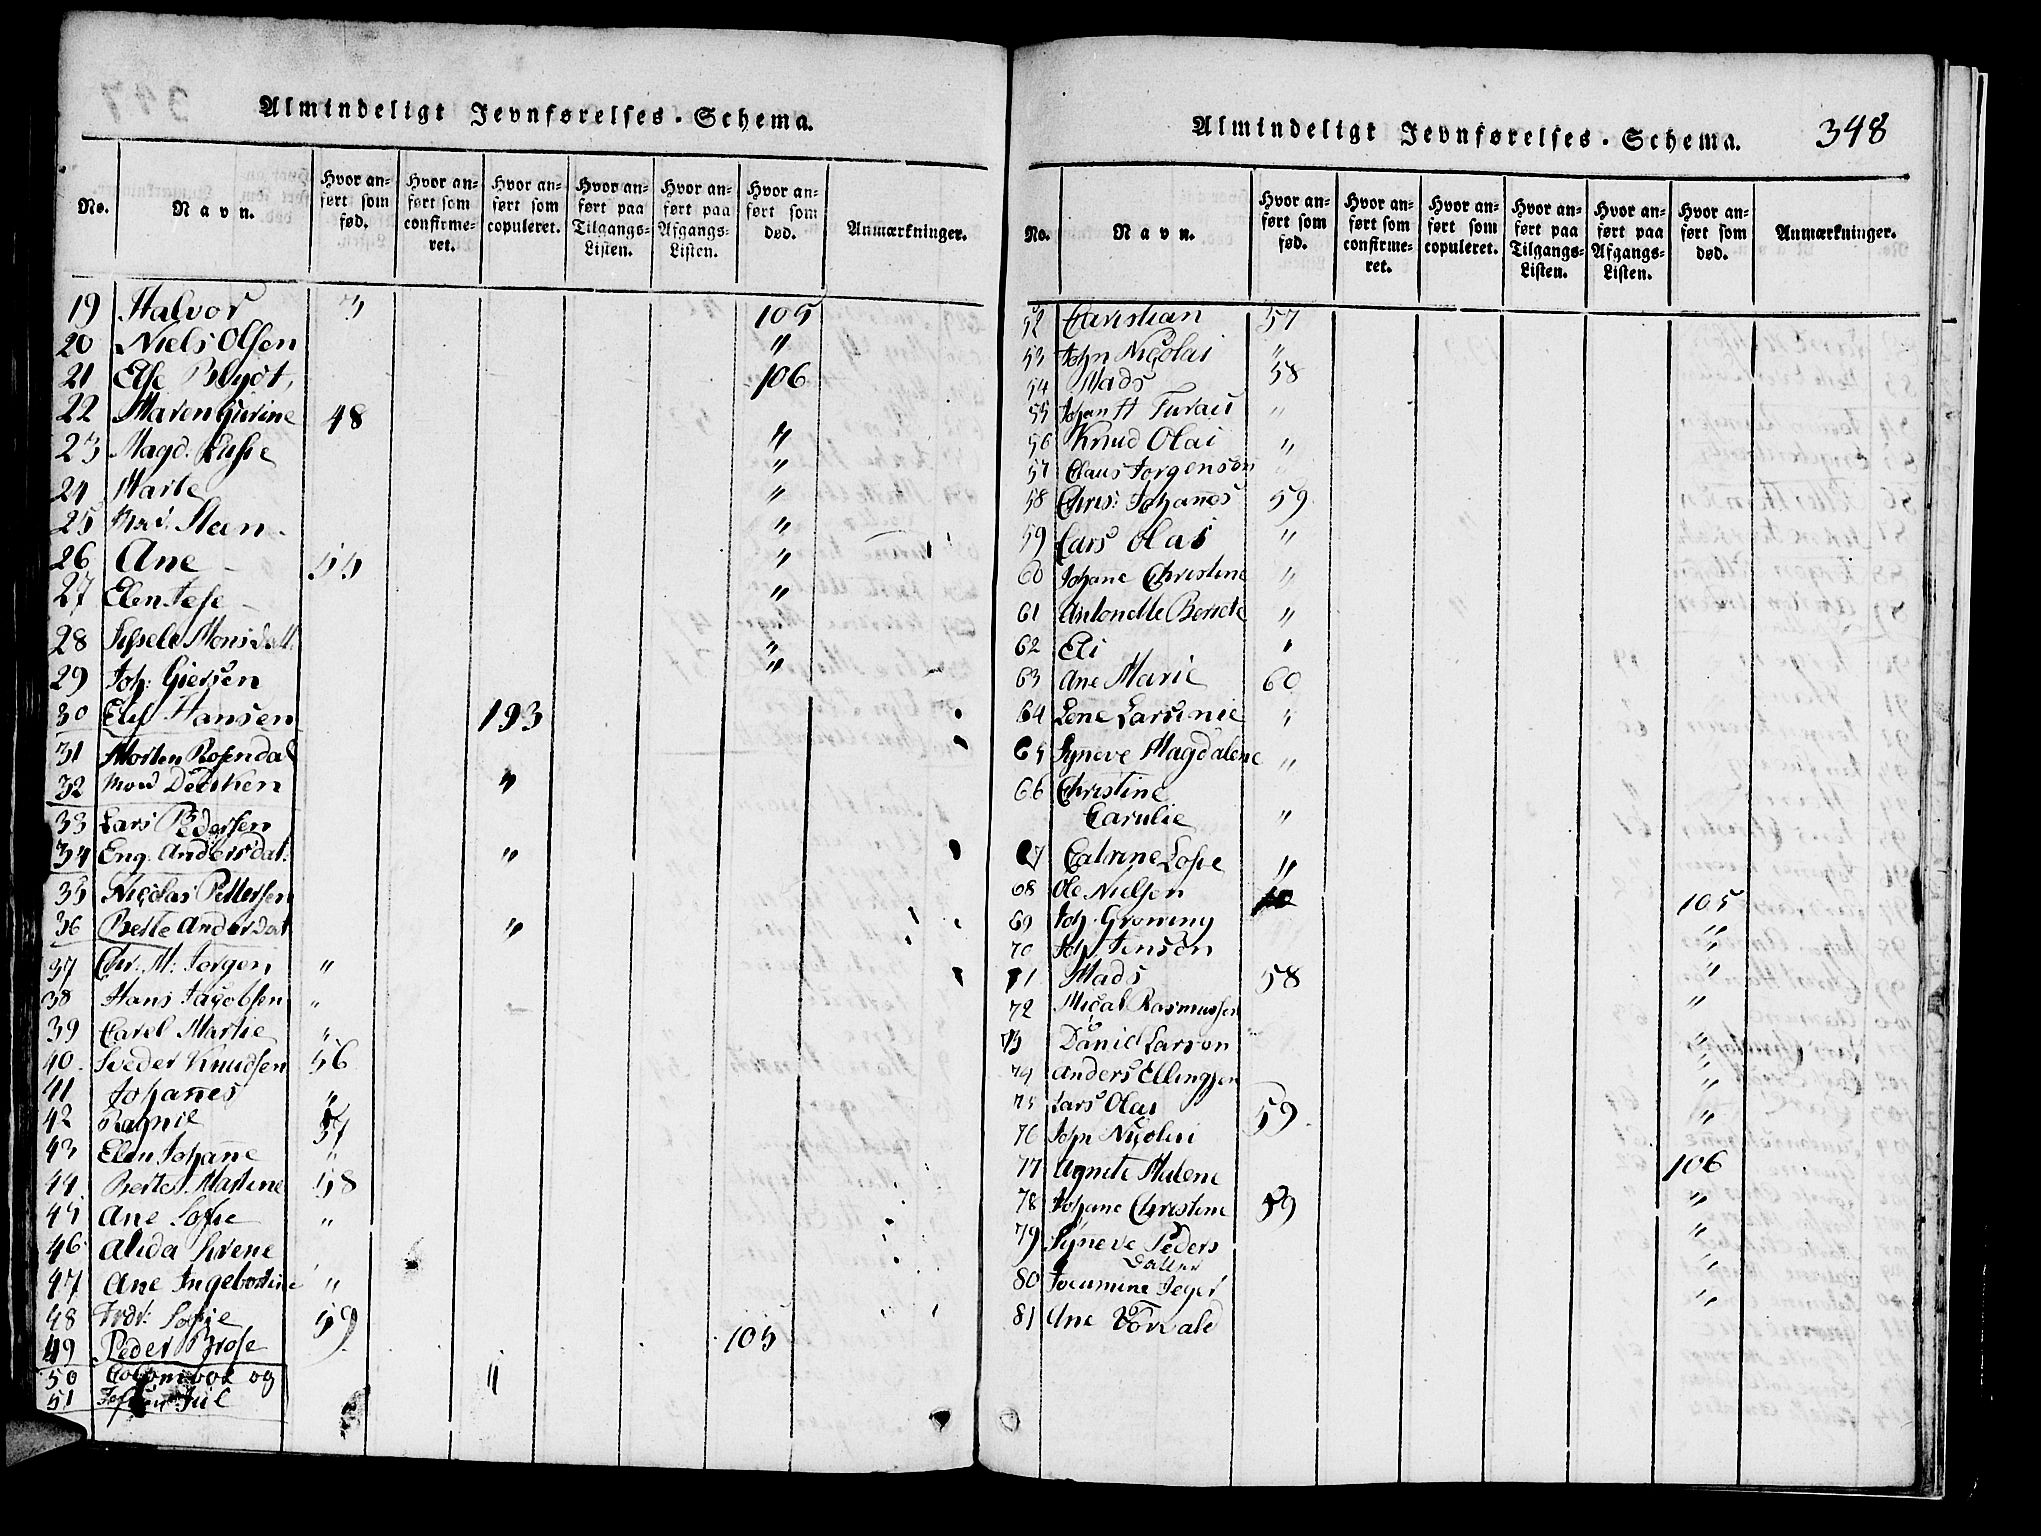 Almindeligt Jevnførelses-Schema.
No. Navn. Hvor anført som fød. Hvor anført som confirmeret. Hvor anført som copuleret. Hvor anført paa Tilgangs-Listen. Hvor anført paa Afgangs-Listen. Hvor anført som død. Anmærkninger.
19 Halvor 105
20 Niels Olsen "
21 Else Blydt, 106
22 Maren Gurine 48
23 Magd. "
24 Marte "
25 "
26 Ane 55 "
27 Elen "
28 Monsdatt "
29 Joh: Giersen "
30 Hansen 193
31 Morten Rosendal
32 "
33 Lars Pedersen
34 Eng. Andersdat: "
35 Nicolas Pettersen
36 Berte Andersdat "
37 Chr. M: Jorgen "
38 Hans Jacobsen "
39 Carel Martie "
40 Sveder Knudsen 56
41 Johannes "
42 Ragnil 57
43 Elen Johanne "
44 Berte Martine 58
45 Ane Sofie "
46 Alida Sirene
47 Ane Ingebortine "
48 Fredr: Sofie 59
49 Peder Brose 105
50 og "
51 Juul
Almindeligt Jevnførelses-Schema. 348
No. Navn. Hvor anført som fød. Hvor anført som confirmeret. Hvor anført som copuleret. Hvor anført paa Tilgangs-Listen. Hvor anført paa Afgangs-Listen. Hvor anført som død. Anmærkninger.
52 Christian 57
53 John Nicolai "
54 Mads 58
55 Johan H "
56 Knud Olai "
57 Claus Jorgenson "
58 Chris: Johanes 59
59 Lars Olai "
60 Johane Christine "
61 Antonette Bernete "
62 Eli "
63 Ane Marie 60
64 Lene Larsinie "
65 Syneve Magdalene "
66 Christine
Carulie "
67 Catrine Sofie "
68 Ole Nielsen 105
69 Joh. Groning "
70 Joh. Jenson "
71 Mads 58 "
72 Micael Rasmussen "
73 Daniel Larson "
74 Anders Ellingsen "
75 Lars Olai 59 "
76 John Nicolai "
77 Agnete Malene 106
78 Johane Christine 59 "
79 Syneve Peders
Datter "
80 Jocumine Jeger "
81 Ane "